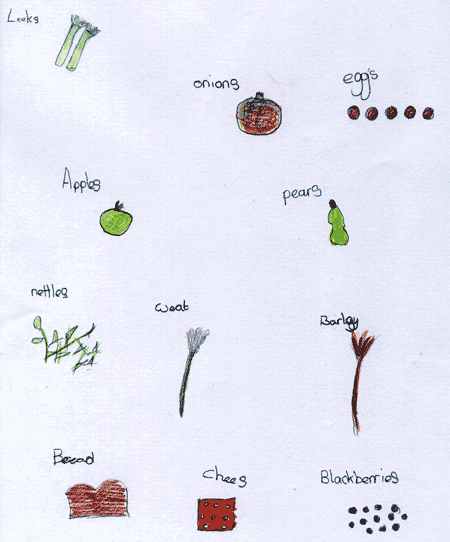 Leeks
onions
egg's
Apples
pears
nettles
weat
Barley
Bread
Chees
Blackberries